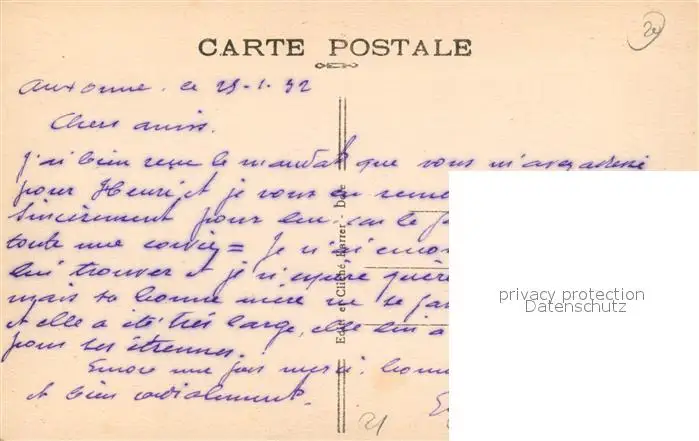 CARTE POSTALE
Auxonne. ce 25-1-32
Chers amis.
J'ai bien reçu le mandat que vous m'avez adressé
pour Henri, et je vous en
sincèrement pour lui, car le
toute une
lui trouver et je n'espère guère
mais sa bonne mère ne se
et elle a été très large, elle lui a
pour ses étrennes.
Encore une fois merci,
et bien cordialement.
Edit. et Cliché, Karrer - Dole
privacy protection
Datenschutz
21